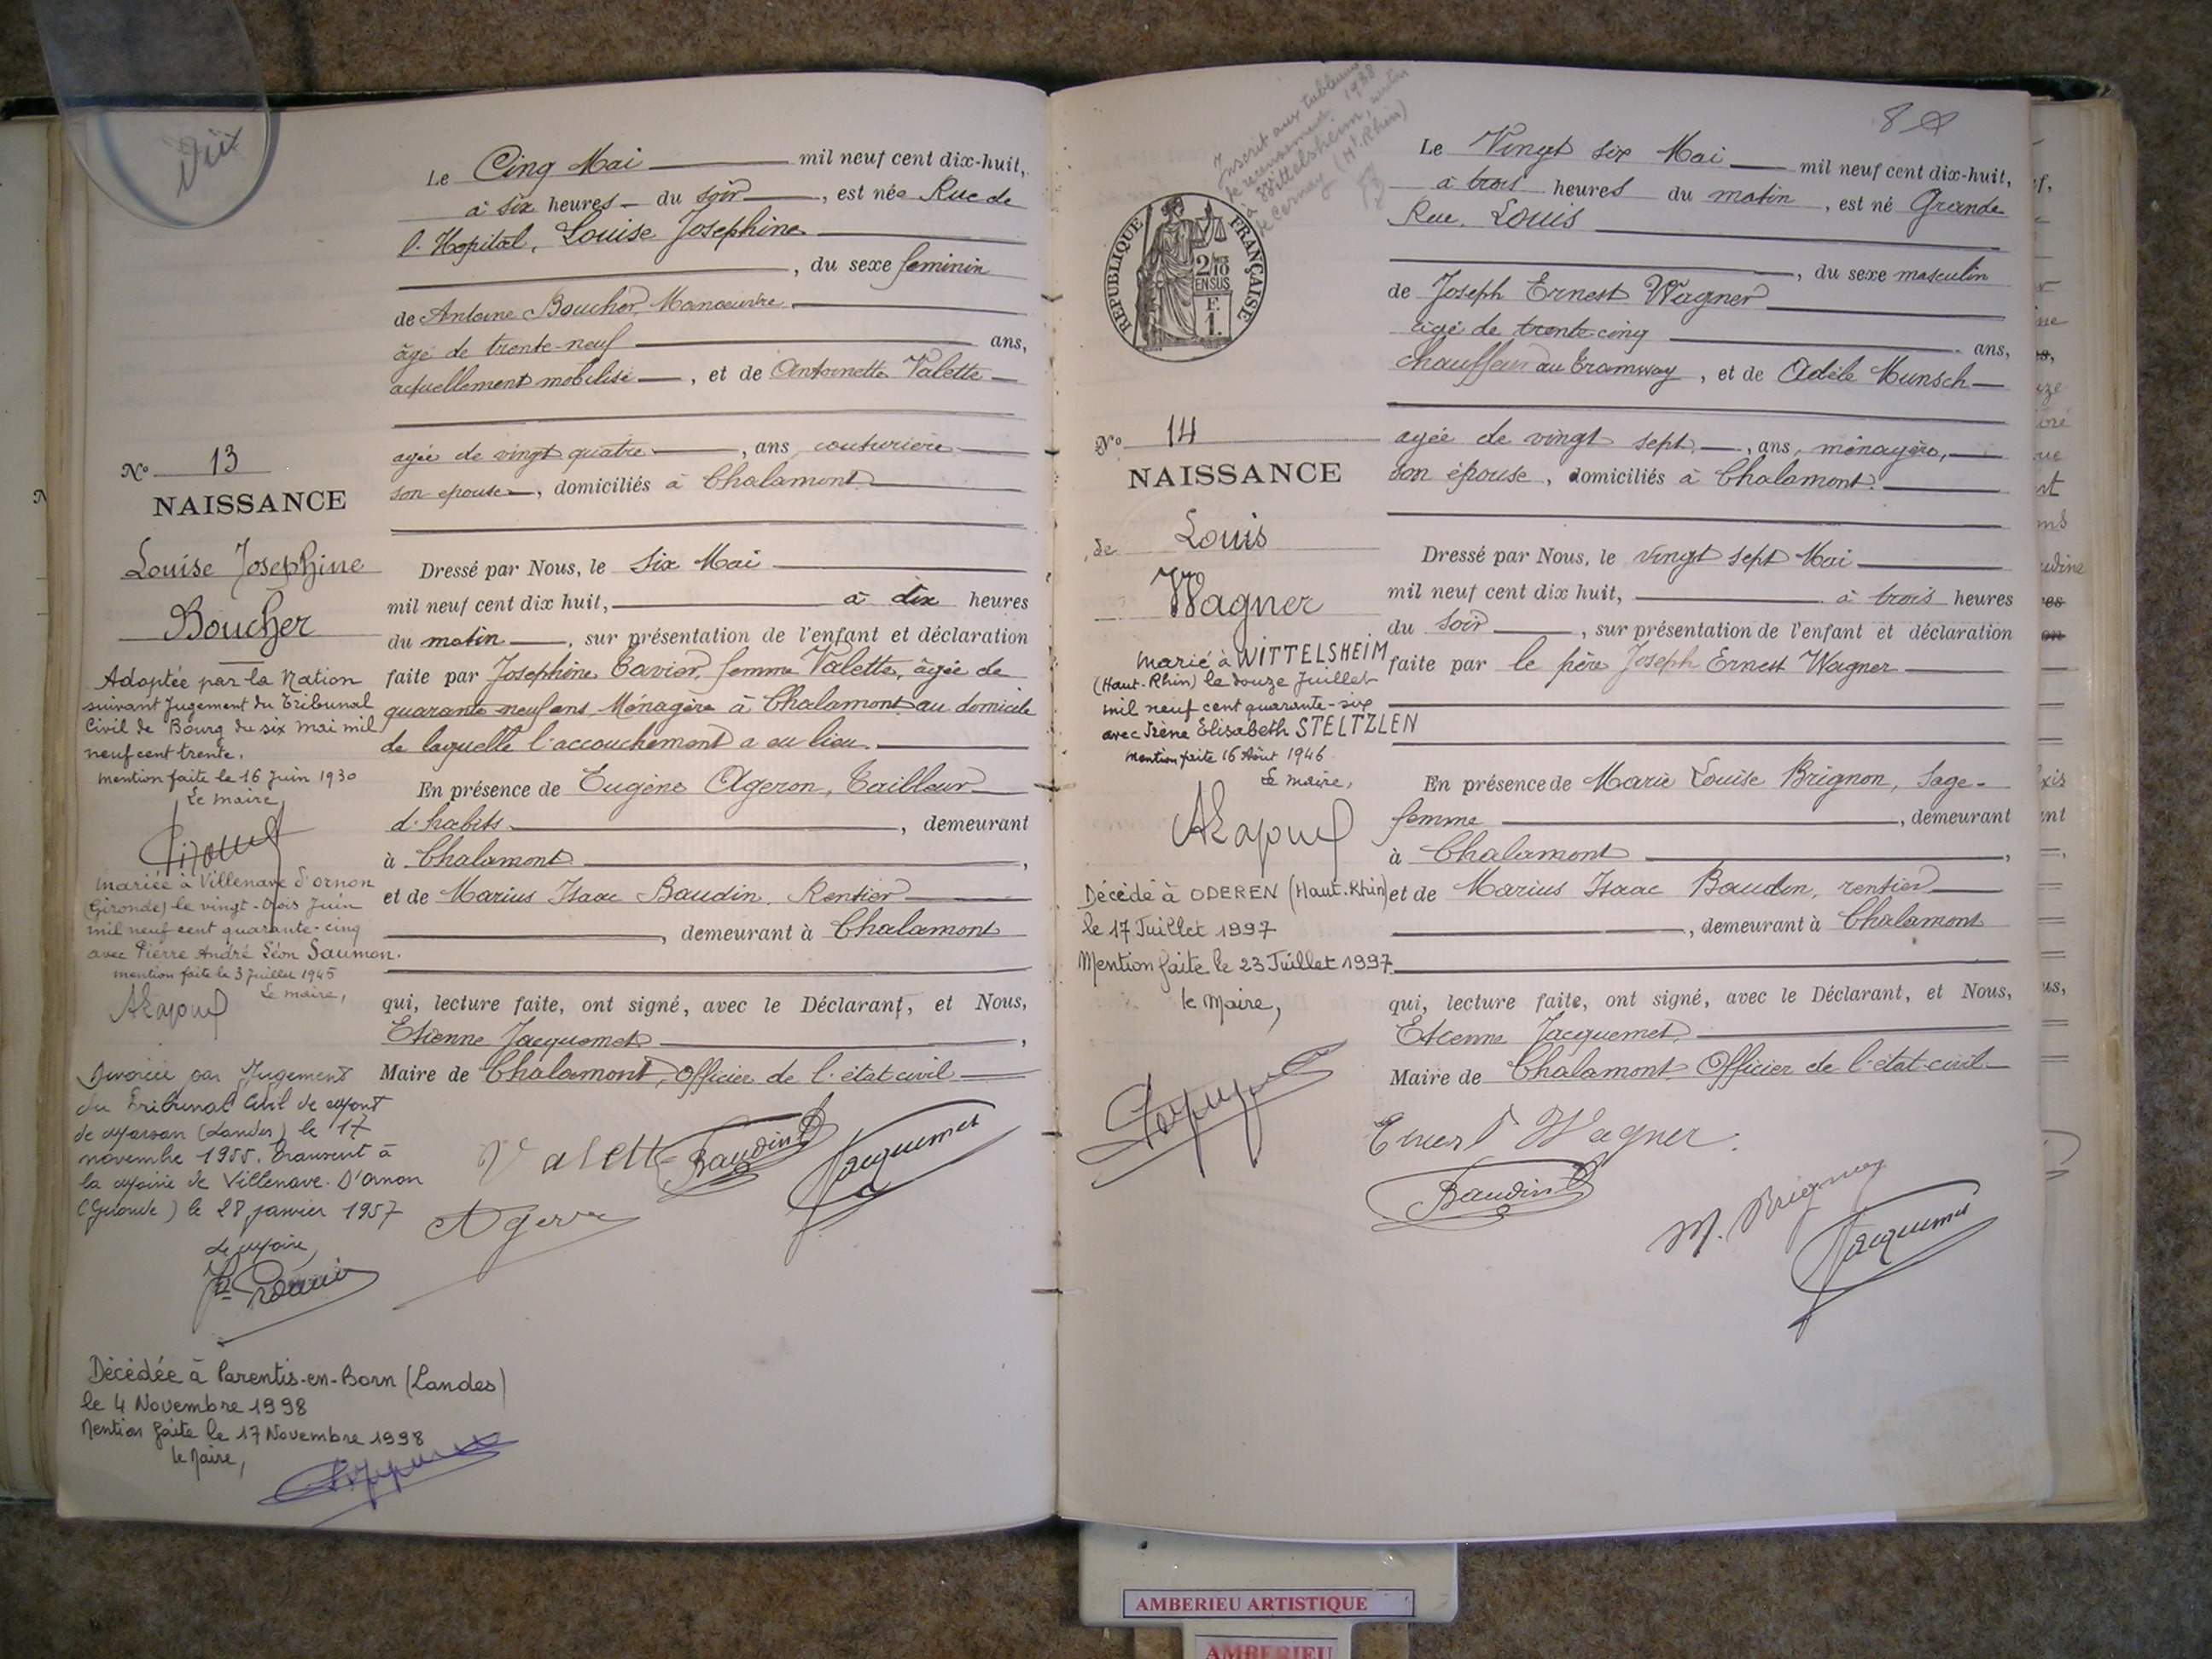 Le Cinq Mai mil neuf cent dix-huit,
à six heures du soir, est née Rue de
l'Hopital, Louise Josephine
, du sexe feminin
de Antoine Boucher, Manoeuvre
âgé de trente-neuf ans,
actuellement mobilisé, et de Antoinette Valette
agée de vingt quatre, ans couturière
son epouse, domiciliés à Chalamont
Nº 13
NAISSANCE
Louise Josephine
Boucher
Dressé par Nous, le Six Mai
mil neuf cent dix huit, à dix heures
du matin, sur présentation de l'enfant et déclaration
faite par Josephine femme Valette, âgée de
quarante neuf ans, Ménagère à Chalamont au domicile
de laquelle l'accouchement a eu lieu.
En présence de Eugène Ageron, Tailleur
d'habits, demeurant
à Chalamont,
et de Marius Isaac Baudin, Rentier
, demeurant à Chalamont
qui, lecture faite, ont signé, avec le Déclarant, et Nous,
Etienne Jacquemet,
Maire de Chalamont, Officier de l'état civil
Valette Baudin Jacquemet
Ageron
Adoptée par la Nation
suivant Jugement du Tribunal
Civil de Bourg du six mai mil
neuf cent trente.
mention faite le 16 Juin 1930
Le maire,
mariée à Villenave d'ornon
(Gironde) le vingt-trois Juin
mil neuf cent quarante-cinq
avec Pierre André Léon Saumon.
mention faite le 3 Juillet 1945
Le maire,
Divorcée par Jugement
du Tribunal Civil de Mont
de Marsan (Landes) le 17
novembre 1955. Transcrit à
la Mairie de Villenave-D'ornon
(Gironde) le 28 janvier 1957
Le Maire,
Décédée à Parentis-en-Born (Landes)
le 4 Novembre 1998
Mention faite le 17 Novembre 1998
le Maire,
8
Inscrit aux tableaux
de recensement 1938
à Wittelsheim, canton
de Cernay (Ht Rhin)
REPUBLIQUE FRANÇAISE
2/10
EN SUS
F.
1.
Le Vingt six Mai mil neuf cent dix-huit,
à trois heures du matin, est né Grande
Rue, Louis
, du sexe masculin
de Joseph Ernest Wagner
âgé de trente-cinq ans,
chauffeur au tramway, et de Adèle Munsch
agée de vingt sept, ans, ménagère,
son épouse, domiciliés à Chalamont.
Nº 14
NAISSANCE
de Louis
Wagner
Dressé par Nous, le vingt sept Mai
mil neuf cent dix huit, à trois heures
du soir, sur présentation de l'enfant et déclaration
faite par le père Joseph Ernest Wagner
En présence de Marie Louise Brignon, Sage-
femme, demeurant
à Chalamont,
et de Marius Isaac Baudin, rentier
, demeurant à Chalamont
qui, lecture faite, ont signé, avec le Déclarant, et Nous,
Etienne Jacquemet
Maire de Chalamont Officier de l'état-civil
Ernest Wagner.
Baudin
M. Brignon
Jacquemet
Marié à WITTELSHEIM
(Haut-Rhin) le douze Juillet
mil neuf cent quarante-six
avec Irène Elisabeth STELTZLEN
Mention faite 16 Août 1946
Le maire,
Décédé à ODEREN (Haut-Rhin)
le 17 Juillet 1997
Mention faite le 23 Juillet 1997
le Maire,
AMBERIEU ARTISTIQUE
AMBERIEU